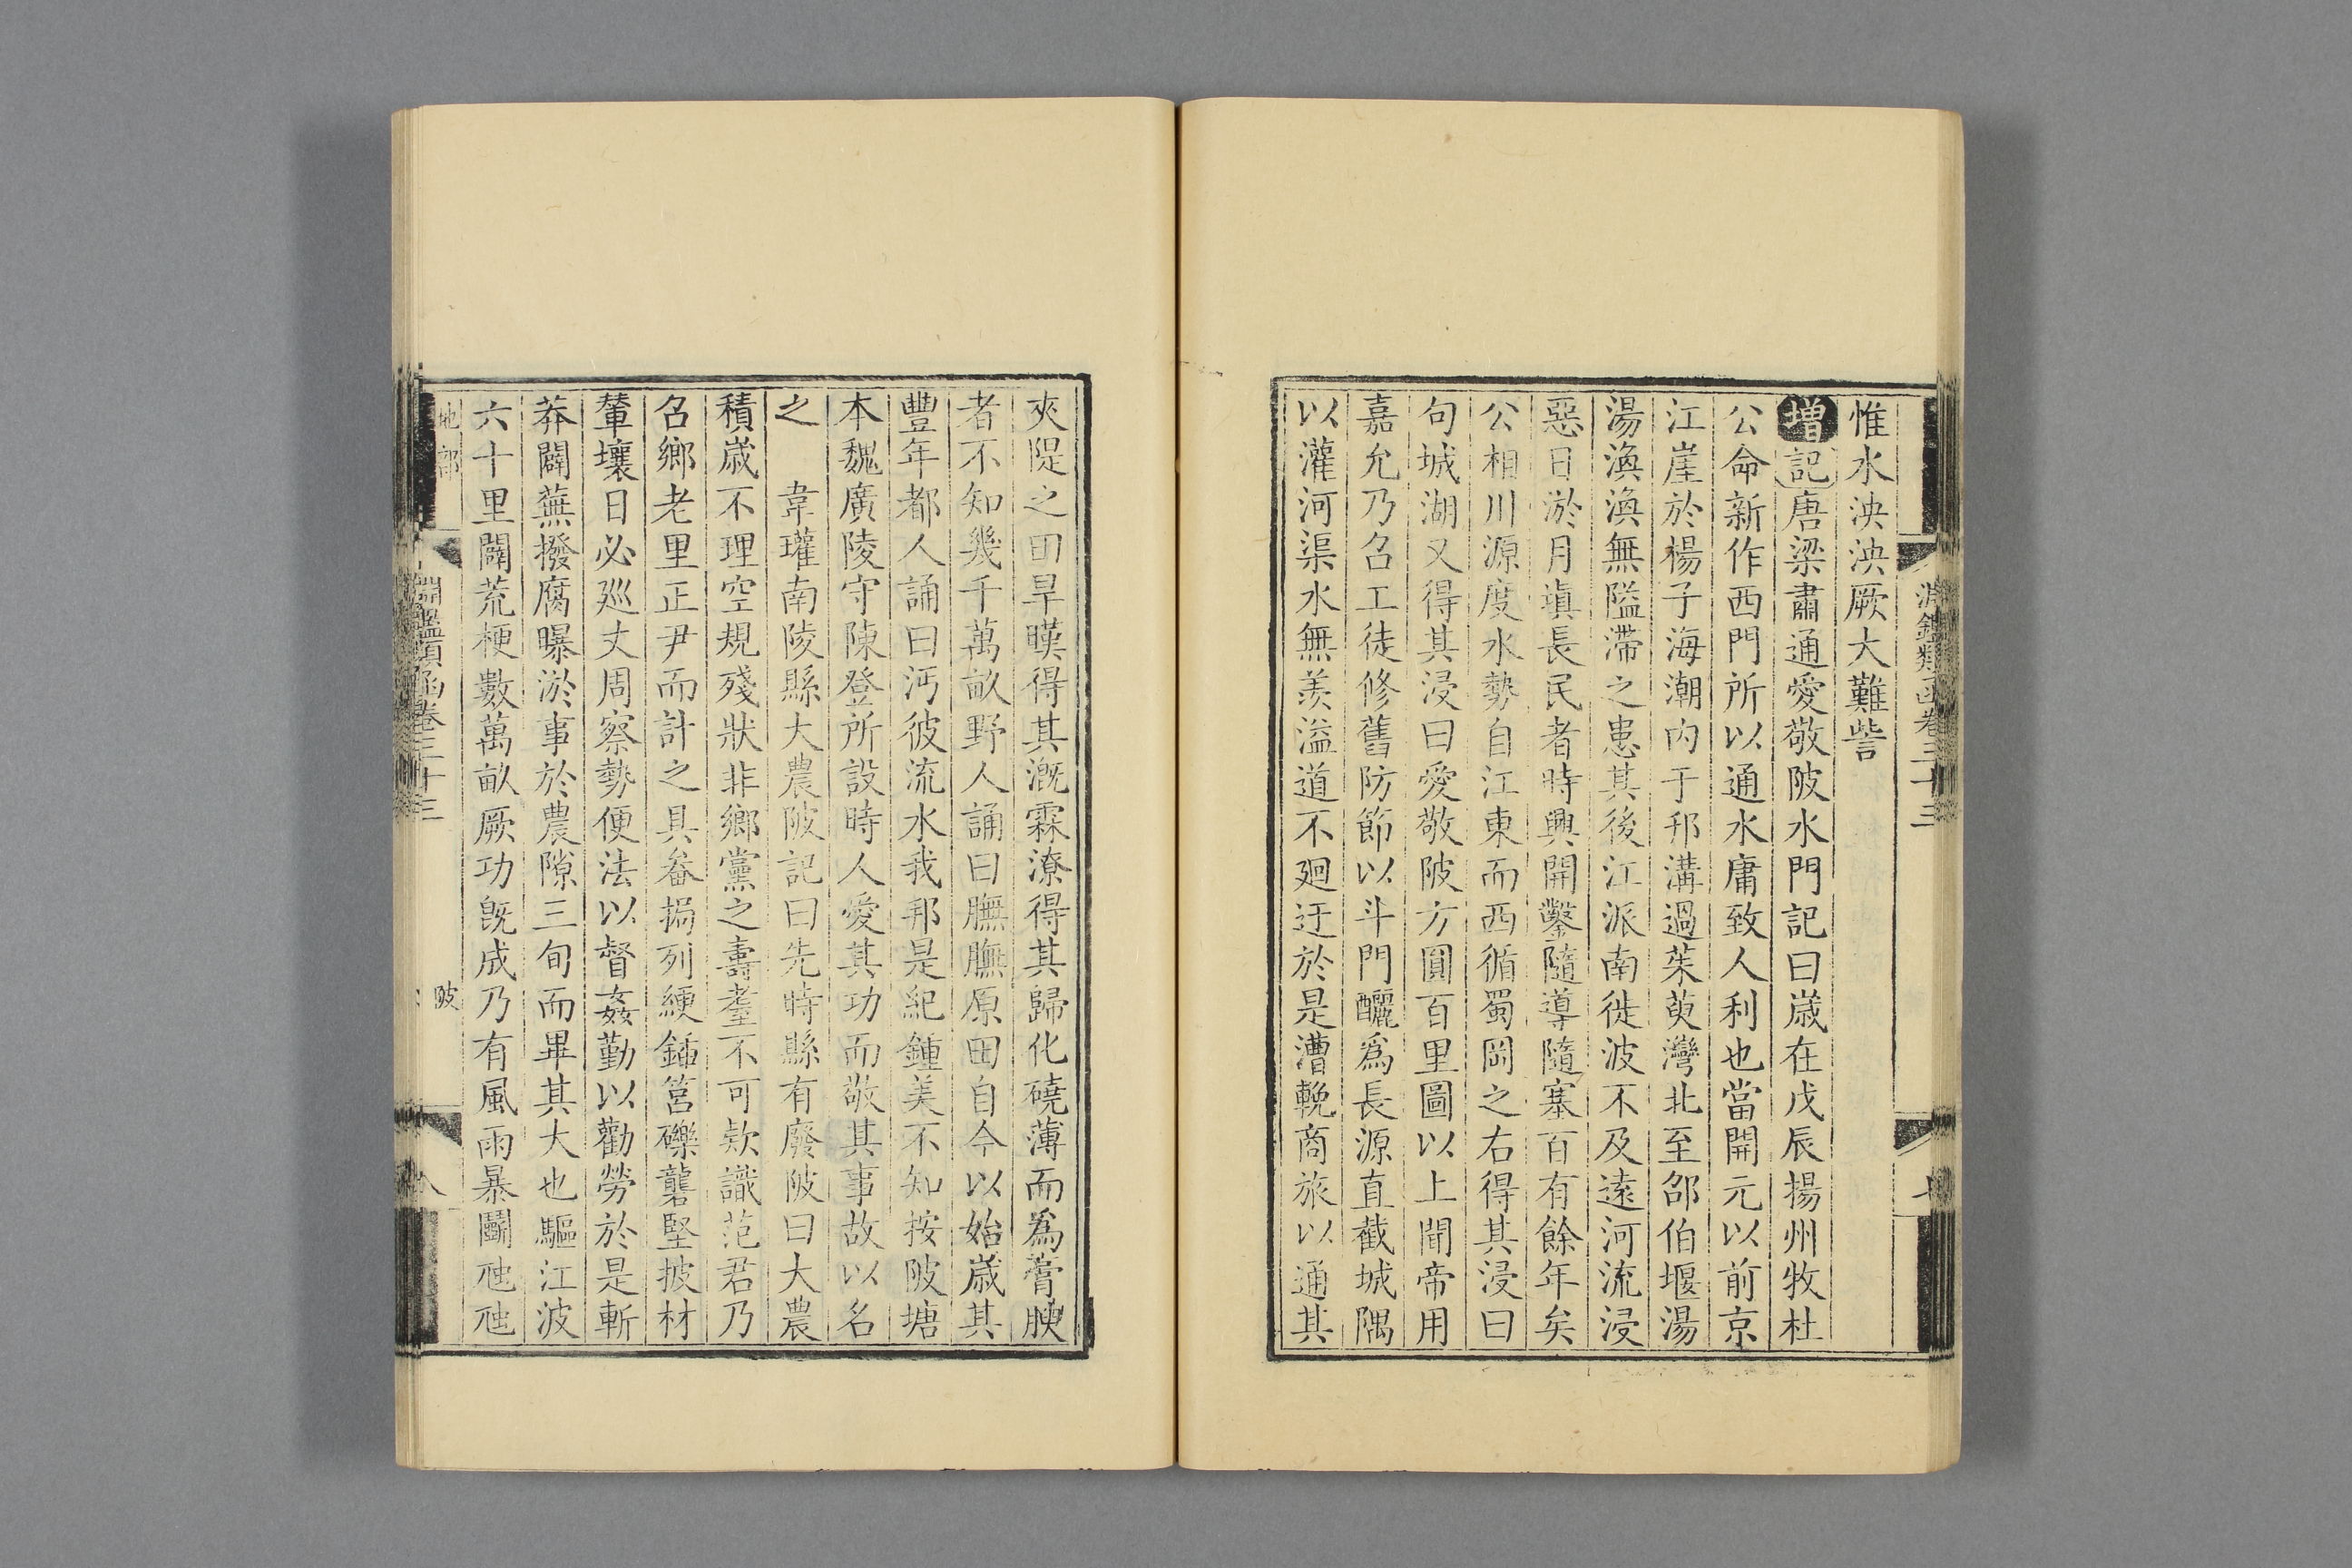 淵鑑類函卷三十三
惟水泱泱厥大難訾
增記唐梁肅通愛敬陂水門記曰歲在戊辰揚州牧杜
公命新作西門所以通水庸致人利也當開元以前京
江崖於楊子海潮內于邗溝過茱萸灣北至邵伯堰湯
湯渙渙無隘滯之患其後江派南徙波不及遠河流浸
惡日淤月塡長民者時興開鑿隨導隨塞百有餘年矣
公相川源度水勢自江東而西循蜀岡之右得其浸曰
句城湖又得其浸曰愛敬陂方圓百里圖以上聞帝用
嘉允乃召工徒修舊防節以斗門釃爲長源直截城隅
以灌河渠水無羨溢道不廻迂於是漕輓商旅以通其
夾隄之田旱暵得其漑霖潦得其歸化磽薄而爲膏腴
者不知幾千萬畝野人誦曰膴膴原田自今以始歲其
豐年都人誦曰沔彼流水我邦是紀鍾美不知按陂塘
本魏廣陵守陳登所設時人愛其功而敬其事故以名
之　韋瓘南陵縣大農陂記曰先時縣有廢陂曰大農
積歲不理空規殘狀非鄉黨之壽耋不可欵識范君乃
召鄉老里正尹而計之具畚挶列綆鍤筥礫礱堅披材
輦壤日必廵丈周察勢便法以督姦勤以勸勞於是斬
莽闢蕪撥腐曝淤事於農隙三旬而畢其大也驅江波
六十里闢荒梗數萬畝厥功旣成乃有風雨暴鬬虺虺
地部
淵鑑類函卷三十三
陂
八